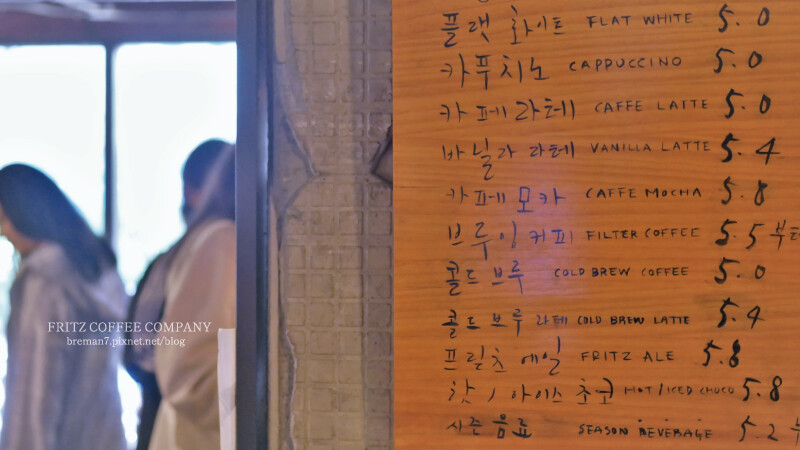 플랫 화이트 FLAT WHITE 5.0
카푸치노 CAPPUCCINO 5.0
카페라테 CAFFE LATTE 5.0
바닐라 라테 VANILLA LATTE 5.4
카페모카 CAFFE MOCHA 5.8
브루잉 커피 FILTER COFFEE 5.5 부터
콜드 브루 COLD BREW COFFEE 5.0
콜드 브루 라테 COLD BREW LATTE 5.4
프릳츠 에일 FRITZ ALE 5.8
핫 / 아이스 초코 HOT / ICED CHOCO 5.8
시즌 음료 SEASON BEVERAGE 5.2 부
FRITZ COFFEE COMPANY
breman7.pixnet.net/blog